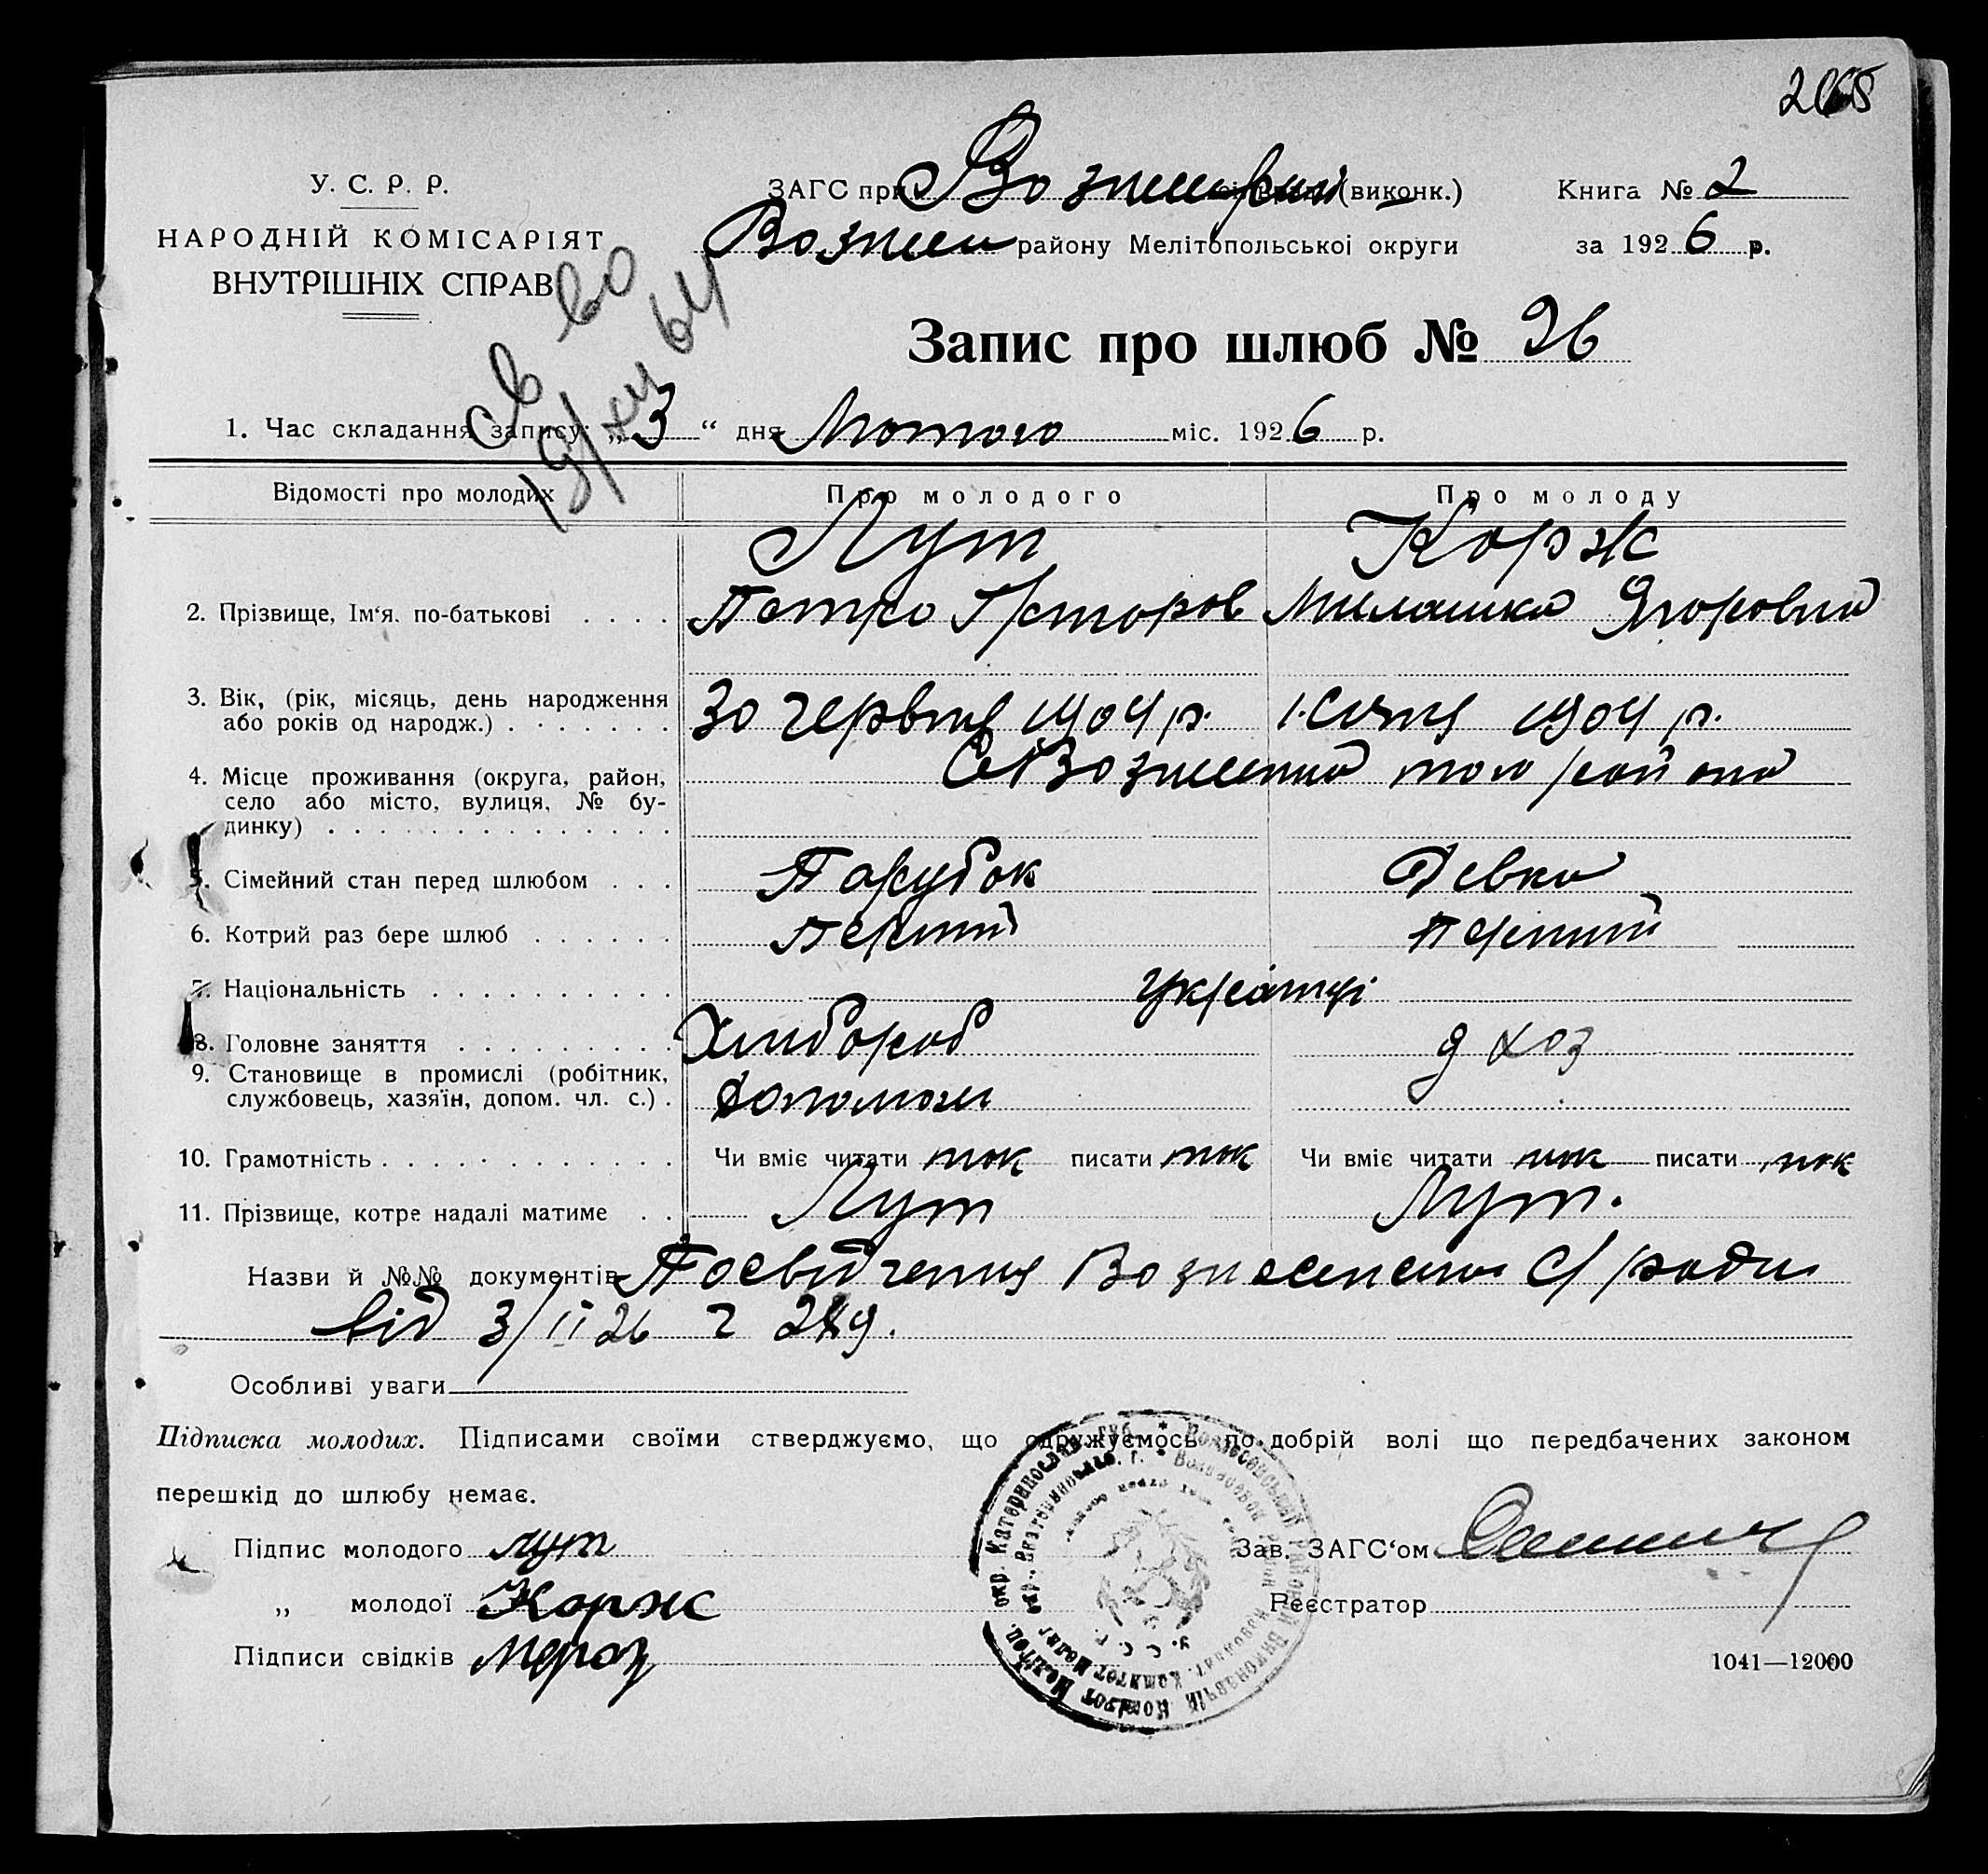 У. С. Р. Р.
НАРОДНІЙ КОМІСАРІЯТ
ВНУТРІШНІХ СПРАВ
ЗАГС при (виконк.) Книга № 2
Вознесен району Мелітопольської округи за 1926 р.
Запис про шлюб № 26
св во
19/XII 64
1. Час складання запису: „3“ дня Лютого міс. 1926 р.
Відомості про молодих Про молодого Про молоду
Лут Корж
2. Прізвище, Ім‘я. по-батькові . . . . Петро Милашка Ягоровна
3. Вік, (рік, місяць, день народження
або років од народж.) . . . . . . . 30 червня 1904 р. 1 Січня 1904 р.
4. Місце проживання (округа, район,
село або місто, вулиця, № бу-
динку) . . . . . . . . . . . . . .
того району
5. Сімейний стан перед шлюбом . . . Парубок Девка
6. Котрий раз бере шлюб . . . . . . Перший Перший
7. Національність . . . . . . . . . . Українці
8. Головне заняття . . . . . . . . . Хлибороб д хоз
9. Становище в промислі (робітник,
службовець, хазяїн, допом. чл. с.) . допомож
10. Грамотність . . . . . . . . . . . . Чи вміє читати так писати так Чи вміє читати так писати так
11. Прізвище, котре надалі матиме . . Лут Лут.
Назви й №№ документів Посвідчення Вознесенської С/ради
від 3/II 26 г 289.
Особливі уваги
Підписка молодих. Підписами своїми стверджуємо, що одружуємось по добрій волі що передбачених законом
перешкід до шлюбу немає.
Підпис молодого Лут
„ молодої Корж
Підписи свідків Мороз
Зав. ЗАГС‘ом
Реєстратор
1041—12000